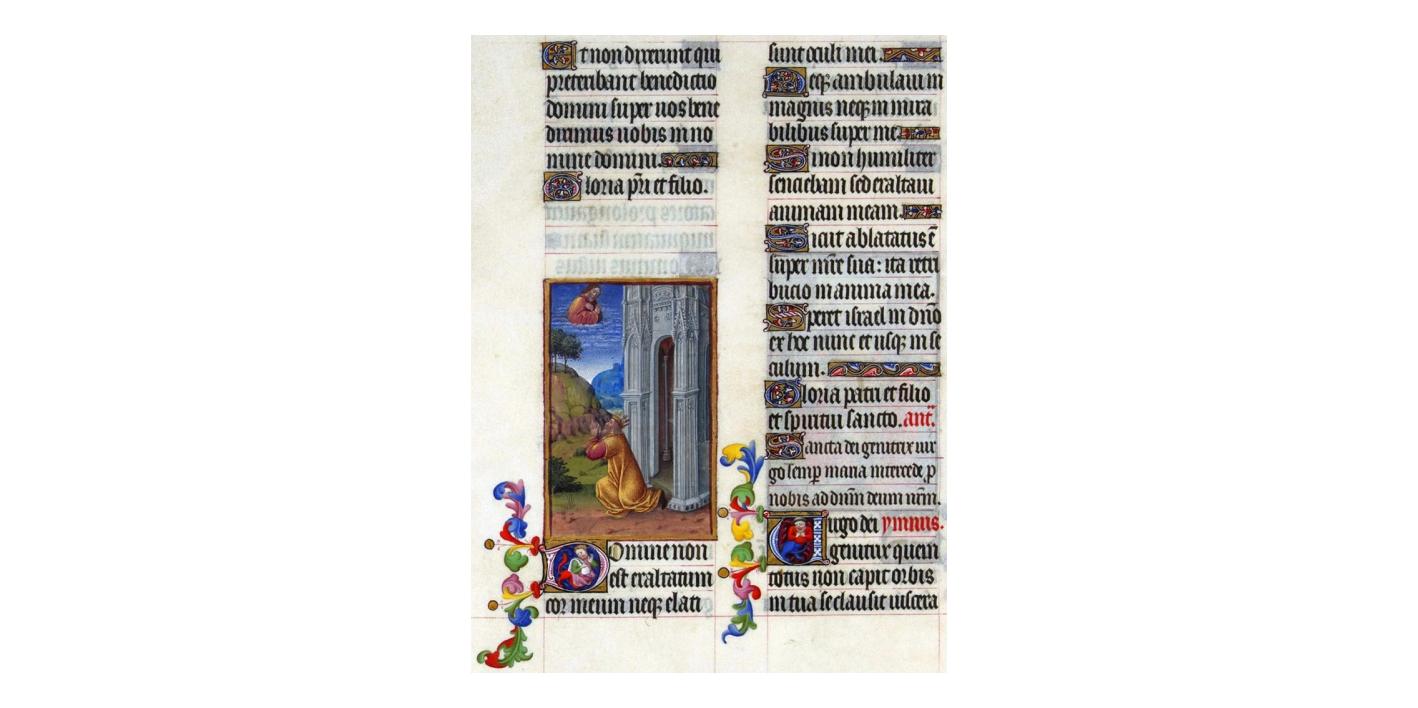 Et non dixerunt qui
preteribant benedictio
domini super vos bene
diximus vobis in no
mine domini.
Gloria pri et filio.
Domine non
est exaltatum
cor meum neqz elati
sunt oculi mei.
Neqz ambulavi in
magnis neqz in mira
bilibus super me.
Si non humiliter
senciebam sed exaltavi
animam meam.
Sicut ablatatus ē
super mre sua: ita retri
bucio in anima mea.
Speret israel in dno
ex hoc nunc et usqz in se
culum.
Gloria patri et filio
et spiritui sancto. ant.
Sancta dei genitrix vir
go semp maria intercede p
nobis ad dnm deum nrm.
Virgo dei ymnus.
genitrix quem
totus non capit orbis
in tua se clausit viscera